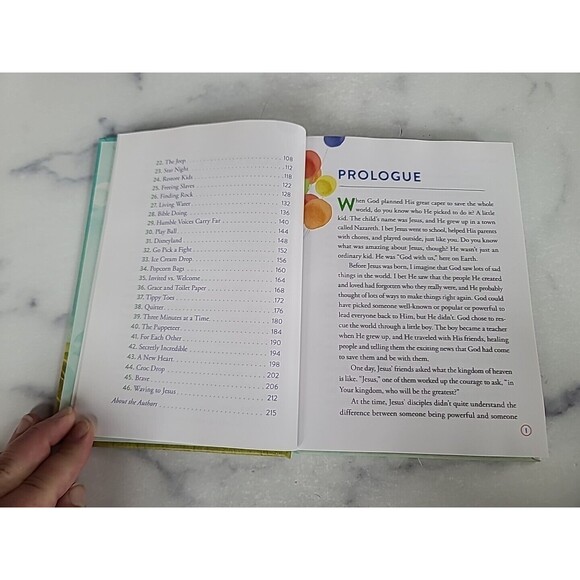 22. The Jeep 108
23. Star Night 112
24. Remote Kids 118
25. Freeing Slaves 122
26. Finding Rock 128
27. Living Water 132
28. Bible Doing 136
29. Humble Voices Carry Far 140
30. Play Ball 144
31. Disneyland 148
32. Go Pick a Fight 152
33. Ice Cream Drop 156
34. Popcorn Bags 160
35. Invited vs. Welcome 164
36. Grace and Toilet Paper 168
37. Tippy Toes 172
38. Quitter 176
39. Three Minutes at a Time 180
40. The Puppeteer 184
41. For Each Other 190
42. Secretly Incredible 194
43. A New Heart 198
44. Croc Drop 202
45. Brave 206
46. Waving to Jesus 212
About the Authors 215
PROLOGUE
When God planned His great caper to save the whole
world, do you know who He picked to do it? A little
kid. The child's name was Jesus, and He grew up in a town
called Nazareth. I bet Jesus went to school, helped His parents
with chores, and played outside, just like you. Do you know
what was amazing about Jesus, though? He wasn't just an
ordinary kid. He was "God with us," here on Earth.
Before Jesus was born, I imagine that God saw lots of sad
things in the world. I bet He saw that the people He created
and loved had forgotten who they really were, and He probably
thought of lots of ways to make things right again. God could
have picked someone well-known or popular or powerful to
lead everyone back to Him, but He didn't. God chose to res-
cue the world through a little boy. The boy became a teacher
when He grew up, and He traveled with His friends, healing
people and telling them the exciting news that God had come
to save them and be with them.
One day, Jesus' friends asked what the kingdom of heaven
is like. "Jesus," one of them worked up the courage to ask, "in
Your kingdom, who will be the greatest?"
At the time, Jesus' disciples didn't quite understand the
difference between someone being powerful and someone
1